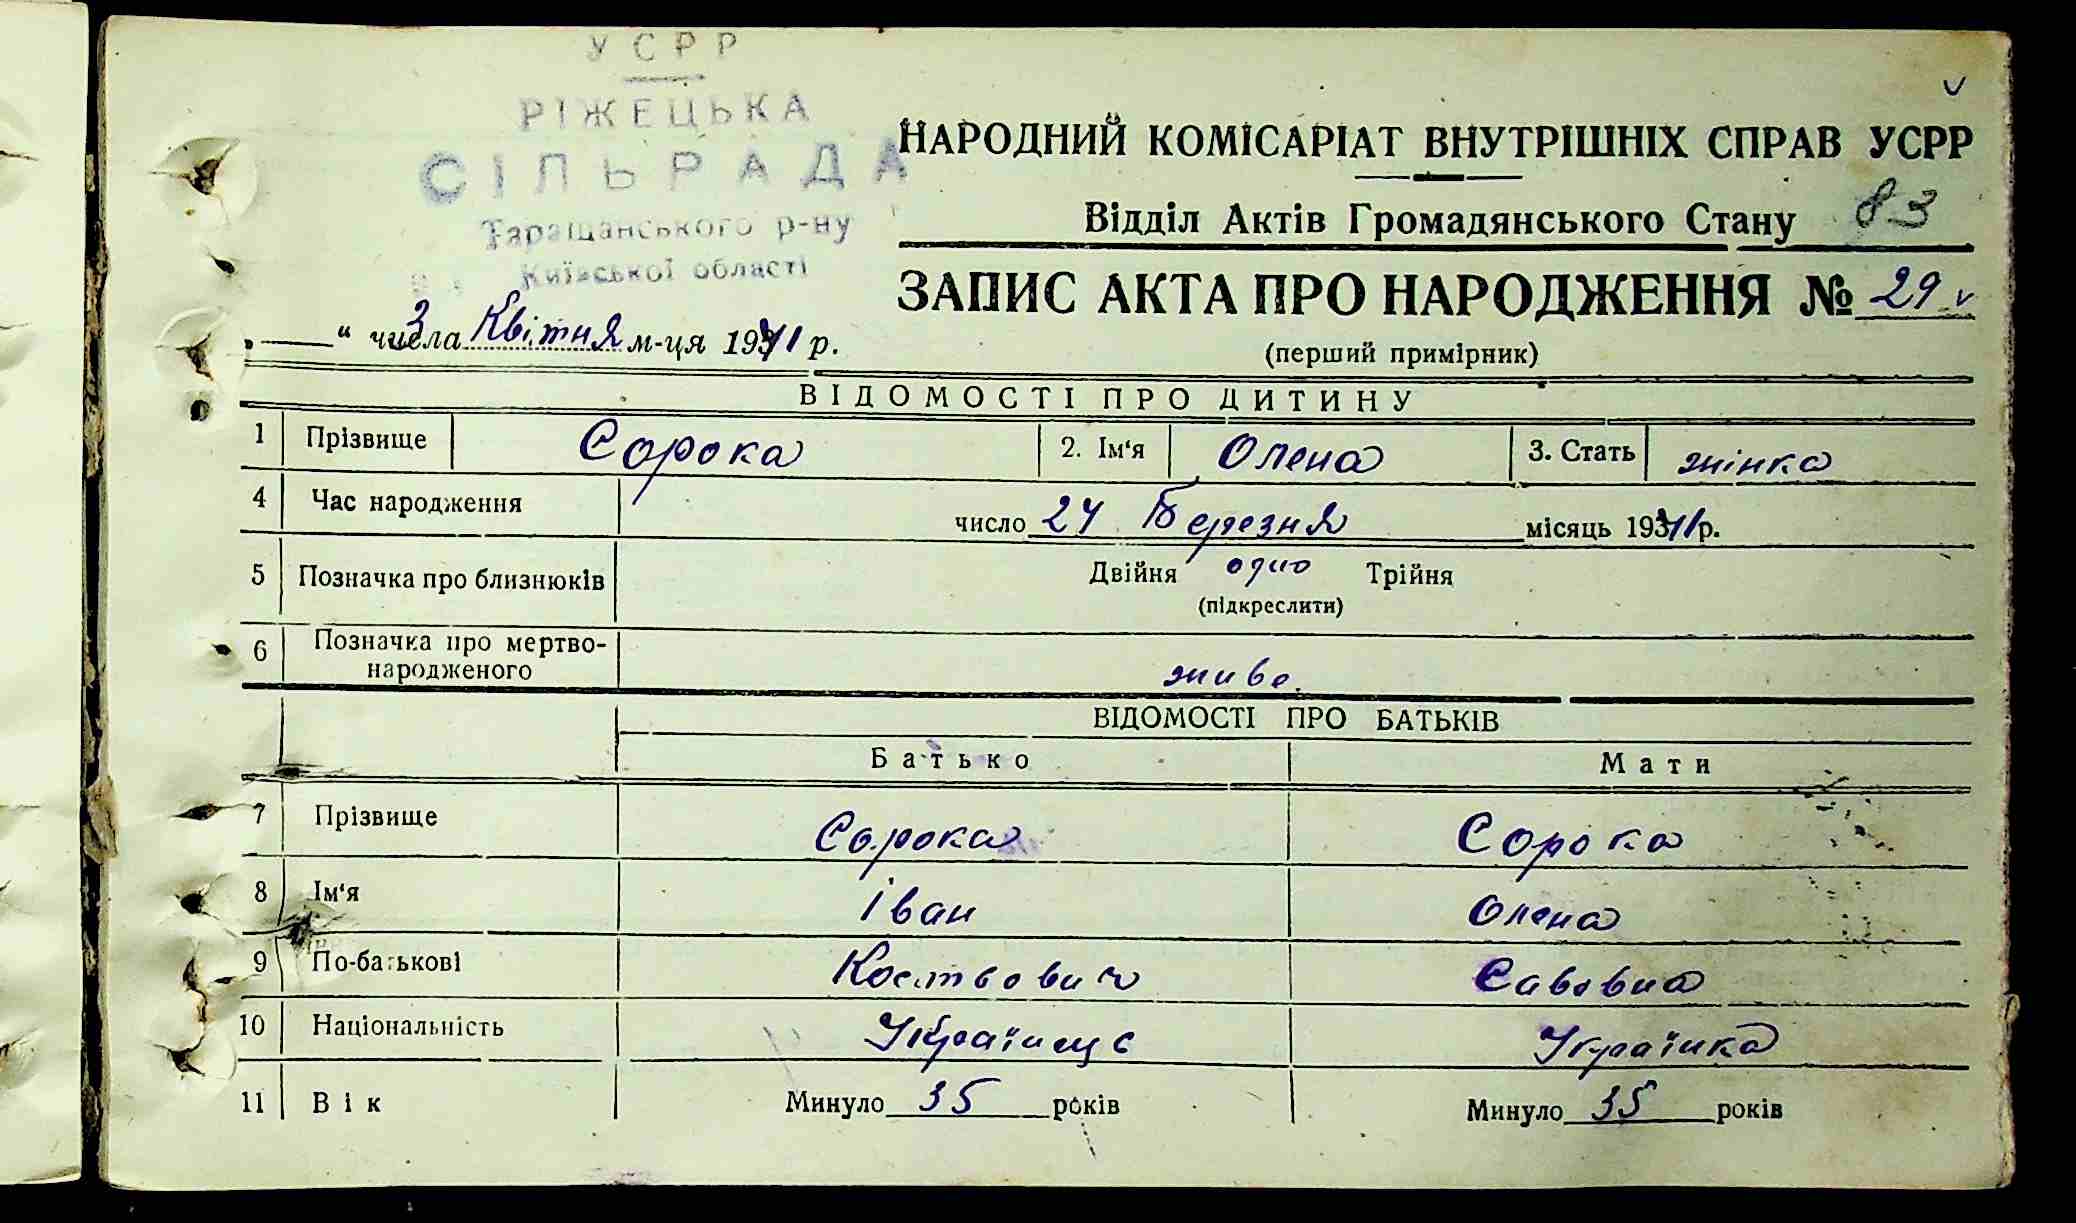 УСРР
РІЖЕЦЬКА
СІЛЬРАДА
Таращанського р-ну
Київської області
НАРОДНИЙ КОМІСАРІАТ ВНУТРІШНІХ СПРАВ УСРР
Відділ Актів Громадянського Стану 83
ЗАПИС АКТА ПРО НАРОДЖЕННЯ № 29
„ — “ 3 числа Квітня м-ця 1941 р.
(перший примірник)
ВІДОМОСТІ ПРО ДИТИНУ
1 Прізвище Сорока 2. Ім‘я Олена 3. Стать жінка
4 Час народження число 24 Березня місяць 1941 р.
5 Позначка про близнюків Двійня одно Трійня
(підкреслити)
6 Позначка про мертво-
народженого живе.
ВІДОМОСТІ ПРО БАТЬКІВ
Батько Мати
7 Прізвище Сорока Сорока
8 Ім‘я Іван Олена
9 По-батькові Костьович Савовна
10 Національність Українець Українка
11 Вік Минуло 35 років Минуло 35 років